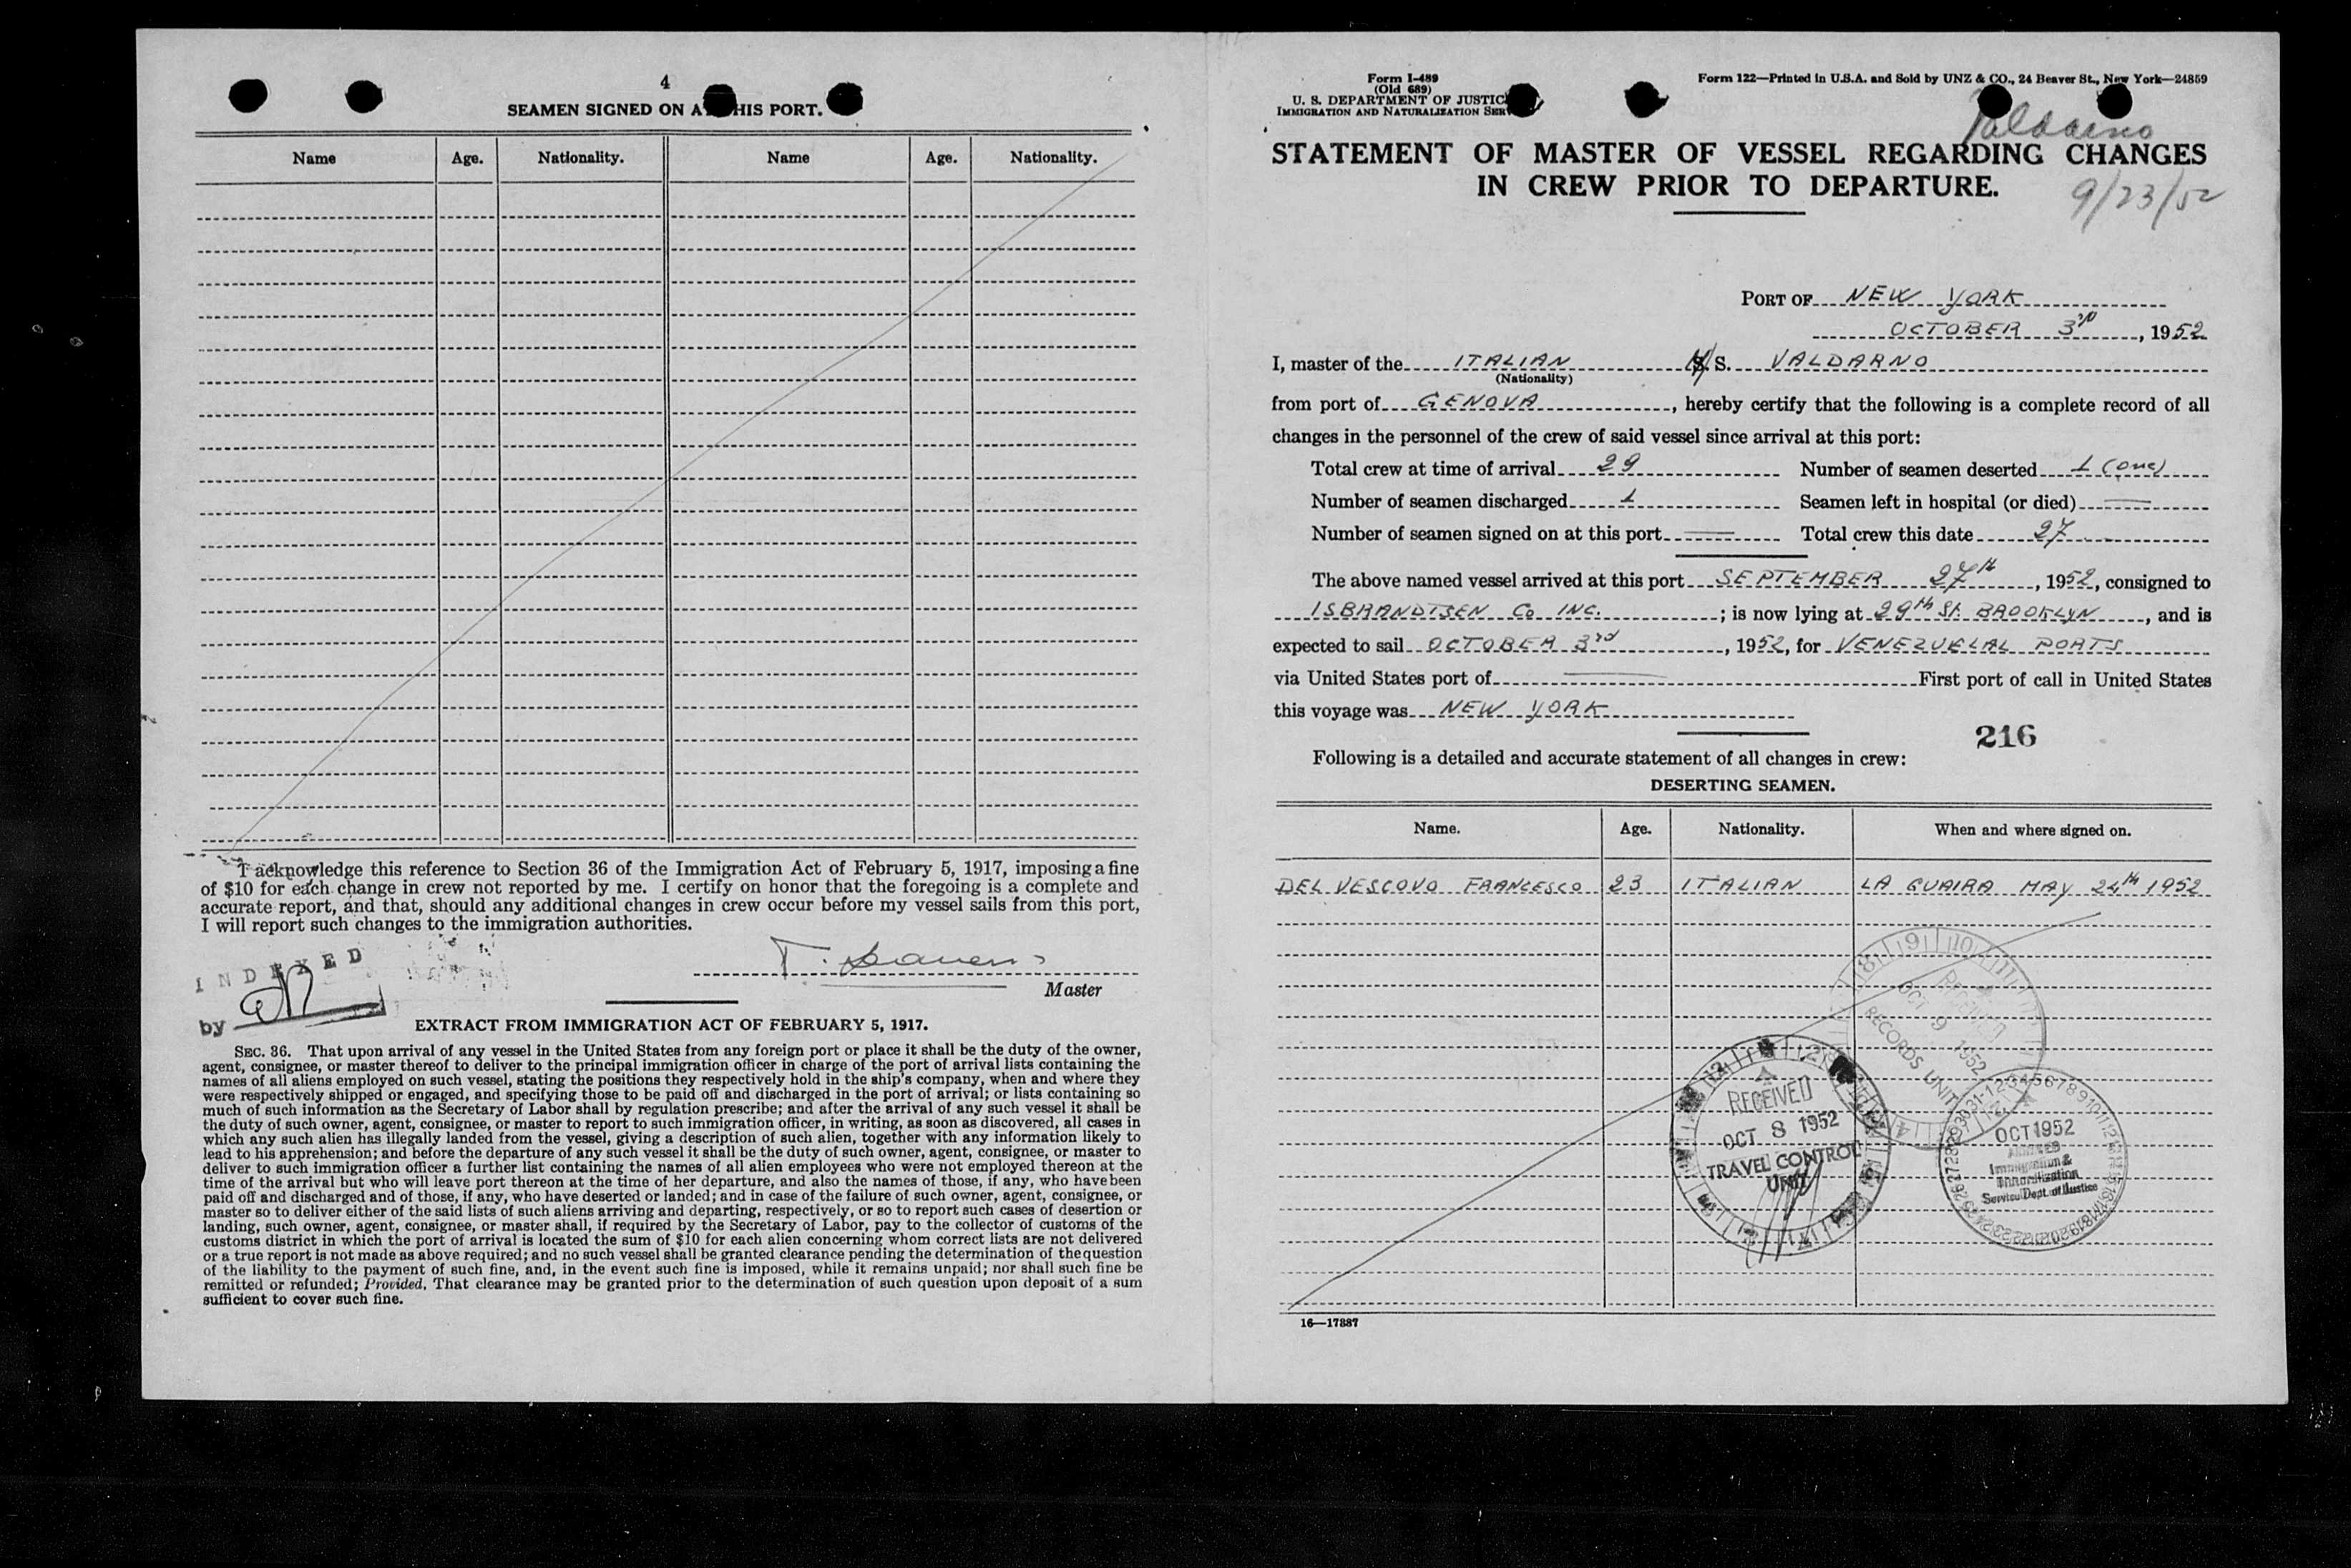 4
SEAMEN SIGNED ON A HIS PORT.
Name Age. Nationality. Name Age. Nationality.
I acknowledge this reference to Section 36 of the Immigration Act of February 5, 1917, imposing a fine
of $10 for each change in crew not reported by me. I certify on honor that the foregoing is a complete and
accurate report, and that, should any additional changes in crew occur before my vessel sails from this port,
I will report such changes to the immigration authorities.
INDEXED
by
Master
EXTRACT FROM IMMIGRATION ACT OF FEBRUARY 5, 1917.
SEC. 36. That upon arrival of any vessel in the United States from any foreign port or place it shall be the duty of the owner,
agent, consignee, or master thereof to deliver to the principal immigration officer in charge of the port of arrival lists containing the
names of all aliens employed on such vessel, stating the positions they respectively hold in the ship's company, when and where they
were respectively shipped or engaged, and specifying those to be paid off and discharged in the port of arrival; or lists containing so
much of such information as the Secretary of Labor shall by regulation prescribe; and after the arrival of any such vessel it shall be
the duty of such owner, agent, consignee, or master to report to such immigration officer, in writing, as soon as discovered, all cases in
which any such alien has illegally landed from the vessel, giving a description of such alien, together with any information likely to
lead to his apprehension; and before the departure of any such vessel it shall be the duty of such owner, agent, consignee, or master to
deliver to such immigration officer a further list containing the names of all alien employees who were not employed thereon at the
time of the arrival but who will leave port thereon at the time of her departure, and also the names of those, if any, who have been
paid off and discharged and of those, if any, who have deserted or landed; and in case of the failure of such owner, agent, consignee, or
master so to deliver either of the said lists of such aliens arriving and departing, respectively, or so to report such cases of desertion or
landing, such owner, agent, consignee, or master shall, if required by the Secretary of Labor, pay to the collector of customs of the
customs district in which the port of arrival is located the sum of $10 for each alien concerning whom correct lists are not delivered
or a true report is not made as above required; and no such vessel shall be granted clearance pending the determination of the question
of the liability to the payment of such fine, and, in the event such fine is imposed, while it remains unpaid; nor shall such fine be
remitted or refunded; Provided, That clearance may be granted prior to the determination of such question upon deposit of a sum
sufficient to cover such fine.
Form I-489
(Old 689)
U. S. DEPARTMENT OF JUSTIC
IMMIGRATION AND NATURALIZATION SER
Form 122—Printed in U.S.A. and Sold by UNZ & CO., 24 Beaver St., New York—24859
Valdarno
STATEMENT OF MASTER OF VESSEL REGARDING CHANGES
IN CREW PRIOR TO DEPARTURE.
9/23/52
PORT OF NEW YORK
OCTOBER 3rd, 1952
I, master of the ITALIAN M/S. VALDARNO
(Nationality)
from port of GENOVA, hereby certify that the following is a complete record of all
changes in the personnel of the crew of said vessel since arrival at this port:
Total crew at time of arrival 29 Number of seamen deserted 1 (one)
Number of seamen discharged 1 Seamen left in hospital (or died)
Number of seamen signed on at this port Total crew this date 27
The above named vessel arrived at this port SEPTEMBER 27th, 1952, consigned to
ISBRANDTSEN Co INC.; is now lying at 29th St. BROOKLYN, and is
expected to sail OCTOBER 3rd, 1952, for VENEZUELAL PORTS
via United States port of First port of call in United States
this voyage was NEW YORK
216
Following is a detailed and accurate statement of all changes in crew:
DESERTING SEAMEN.
Name. Age. Nationality. When and where signed on.
DEL VESCOVO FRANCESCO 23 ITALIAN LA GUAIRA MAY 24th 1952
RECEIVED
OCT 9 1952
RECORDS UNIT
RECEIVED
OCT 8 1952
TRAVEL CONTROL
UNIT
OCT 1952
Immigration &
Naturalization
Service Dept. of Justice
16—17887